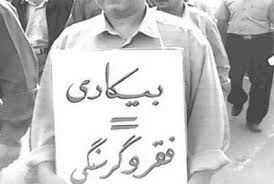 بیکاری
=
فقر و گرسنگی